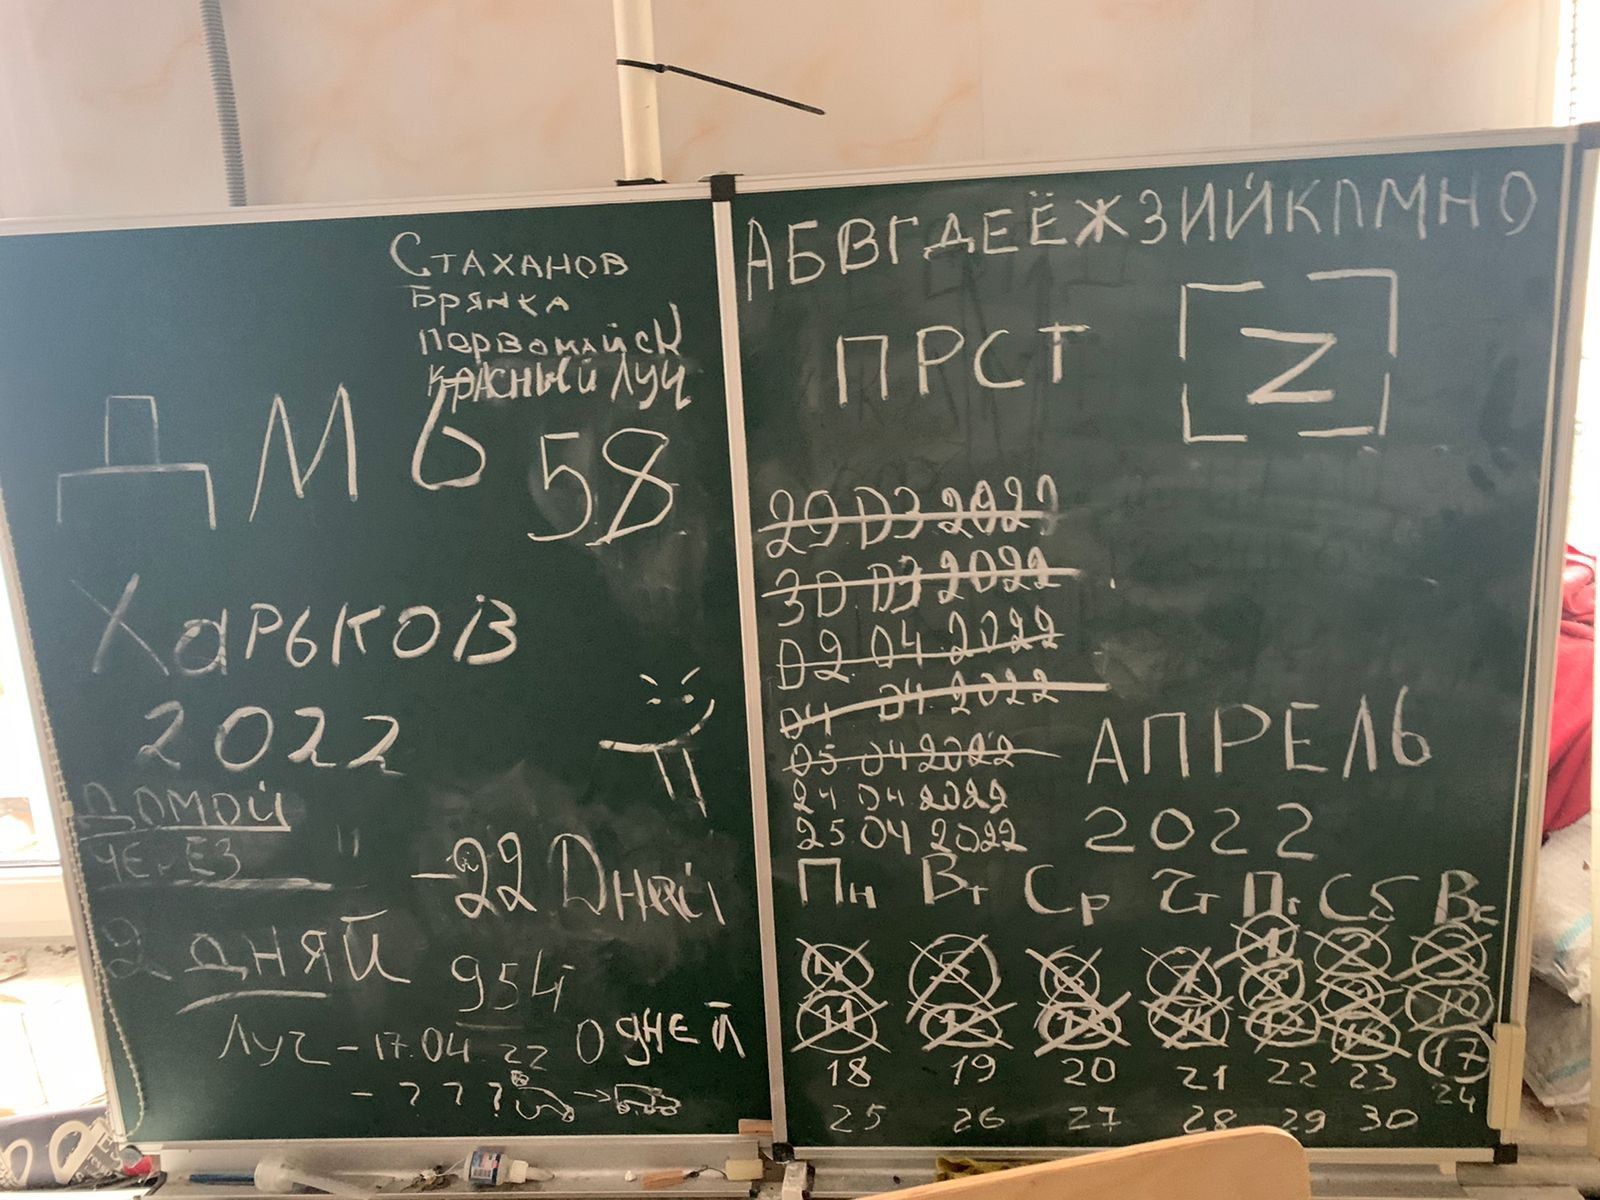 Стаханов
Брянка
Первомайск
Красный Луч
ДМБ 58
Харьков
2022
Домой
через "
2 дняй
-22 Дней
954
Луч - 17.04 22 0 дней
- ? ? ?
АБВГДЕЁЖЗИЙКЛМНО
ПРСТ
Z
29 03 2022
30 03 2022
02 04 2022
04 04 2022
05 04 2022
24 04 2022
25 04 2022
АПРЕЛЬ
2022
Пн Вт Ср Чт Пт Сб Вс
1 2 3
4 5 6 7 8 9 10
11 12 13 14 15 16 17
18 19 20 21 22 23 24
25 26 27 28 29 30